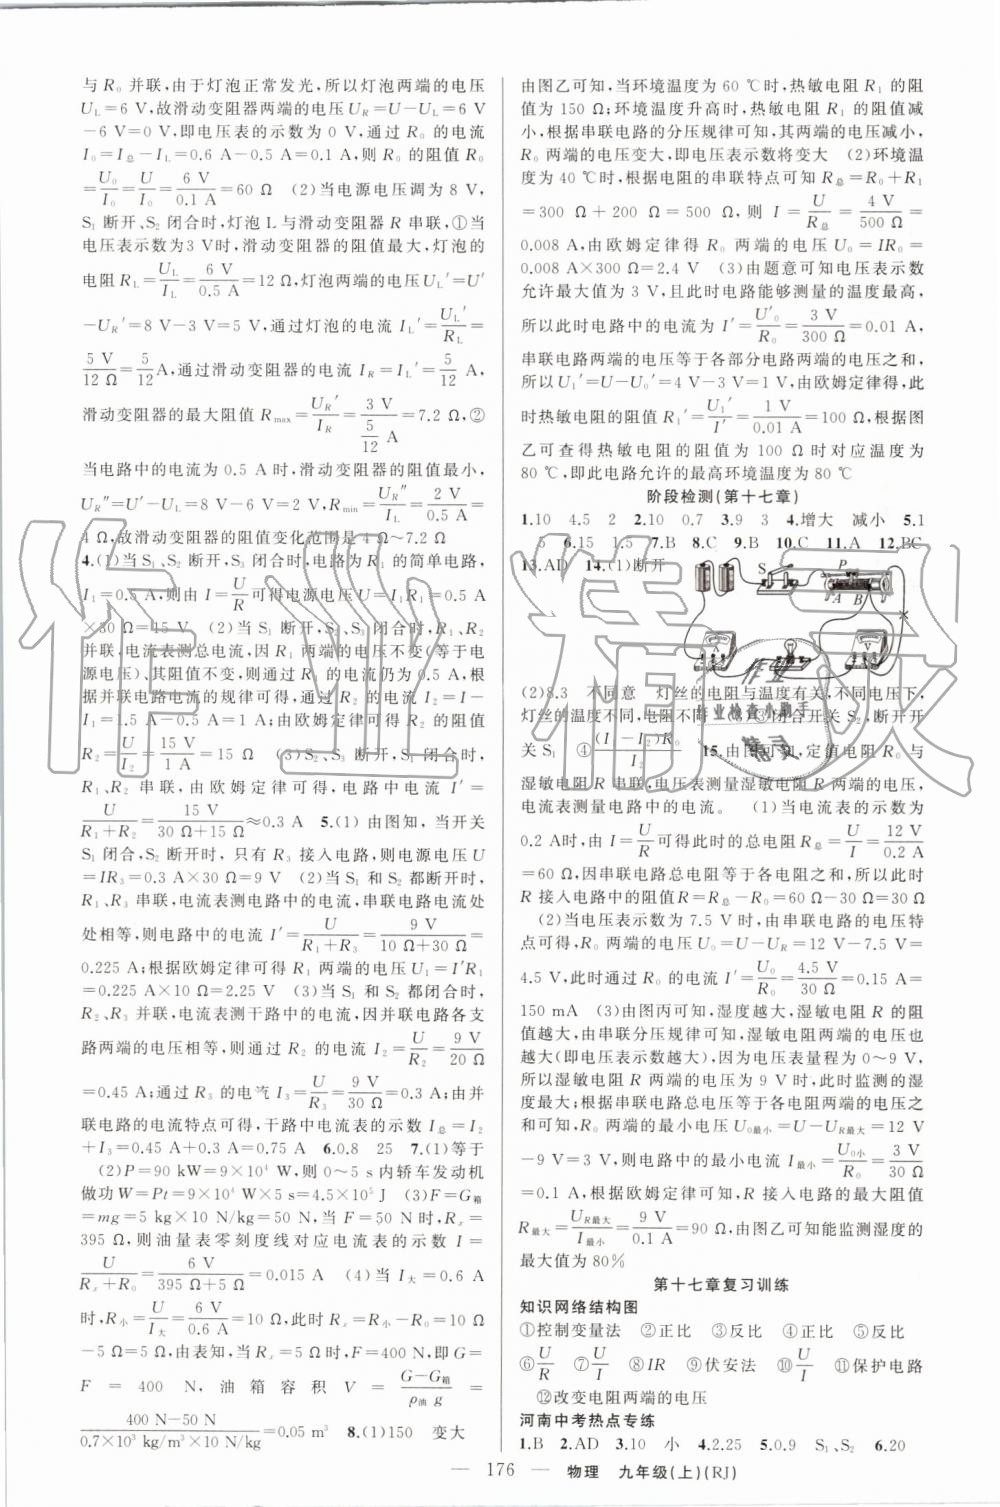 与 R₀ 并联,由于灯泡正常发光,所以灯泡两端的电压
U_L=6 V,故滑动变阻器两端的电压 U_R=U−U_L=6 V
−6 V=0 V,即电压表的示数为 0 V,通过 R₀ 的电流
I₀=I_总−I_L=0.6 A−0.5 A=0.1 A,则 R₀ 的阻值 R₀
=U₀/I₀=U/I₀=6 V/0.1 A=60 Ω (2)当电源电压调为 8 V,
S₁ 断开、S₂ 闭合时,灯泡 L 与滑动变阻器 R 串联,①当
电压表示数为 3 V时,滑动变阻器的阻值最大,灯泡的
电阻 R_L=U_L/I_L=6 V/0.5 A=12 Ω,灯泡两端的电压 U_L′=U′
−U_R′=8 V−3 V=5 V,通过灯泡的电流 I_L′=U_L′/R_L=
5 V/12 Ω=5/12 A,通过滑动变阻器的电流 I_R=I_L′=5/12 A,
滑动变阻器的最大阻值 R_max=U_R′/I_R=3 V/(5/12 A)=7.2 Ω,②
当电路中的电流为 0.5 A 时,滑动变阻器的阻值最小,
U_R″=U′−U_L=8 V−6 V=2 V,R_min=U_R″/I_L=2 V/0.5 A=
4 Ω,故滑动变阻器的阻值变化范围是 4 Ω~7.2 Ω
4.(1)当 S₁、S₂ 断开,S₃ 闭合时,电路为 R₁ 的简单电路,
I₁=0.5 A,则由 I=U/R可得电源电压 U=I₁R₁=0.5 A
×30 Ω=15 V (2)当 S₁ 断开,S₂、S₃ 闭合时,R₁、R₂
并联,电流表测总电流,因 R₁ 两端的电压不变(等于电
源电压),其阻值不变,则流过 R₁ 的电流仍为 0.5 A,根
据并联电路电流的规律可得,通过 R₂ 的电流 I₂=I−
I₁=1.5 A−0.5 A=1 A,由欧姆定律可得 R₂ 的阻值
R₂=U/I₂=15 V/1 A=15 Ω (3)S₂、S₃ 断开,S₁ 闭合时,
R₁、R₂ 串联,由欧姆定律可得,电路中电流 I′=
U/(R₁+R₂)=15 V/(30 Ω+15 Ω)≈0.3 A 5.(1) 由图知,当开关
S₁ 闭合,S₂ 断开时,只有 R₃ 接入电路,则电源电压 U
=IR₃=0.3 A×30 Ω=9 V (2)当 S₁ 和 S₂ 都断开时,
R₁、R₃ 串联,电流表测电路中的电流,串联电路电流处
处相等,则电路中的电流 I′=U/(R₁+R₃)=9 V/(10 Ω+30 Ω)=
0.225 A;根据欧姆定律可得 R₁ 两端的电压 U₁=I′R₁
=0.225 A×10 Ω=2.25 V (3)当 S₁ 和 S₂ 都闭合时,
R₂、R₃ 并联,电流表测干路中的电流,因并联电路各支
路两端的电压相等,则通过 R₂ 的电流 I₂=U/R₂=9 V/20 Ω
=0.45 A;通过 R₃ 的电流 I₃=U/R₃=9 V/30 Ω=0.3 A;由并
联电路的电流特点可得,干路中电流表的示数 I_总=I₂
+I₃=0.45 A+0.3 A=0.75 A 6.0.8 25 7.(1)等于
(2)P=90 kW=9×10⁴ W 则 0~5 s内轿车发动机
做功 W=Pt=9×10⁴ W×5 s=4.5×10⁵ J (3)F=G_箱
=mg=5 kg×10 N/kg=50 N,当 F=50 N时,Rₓ=
395 Ω,则油量表零刻度线对应电流表的示数 I=
U/(Rₓ+R₀)=6 V/(395 Ω+5 Ω)=0.015 A (4)当 I_大=0.6 A
时,R_小=U/I_大=6 V/0.6 A=10 Ω,此时 Rₓ=R_小−R₀=10 Ω
−5 Ω=5 Ω,由表知,当 Rₓ=5 Ω时,F=400 N,即 G=
F=400 N,油箱容积 V=(G−G_箱)/(ρ_油 g)=
(400 N−50 N)/(0.7×10³ kg/m³×10 N/kg)=0.05 m³ 8.(1)150 变大
由图乙可知,当环境温度为 60 ℃时,热敏电阻 R₁ 的阻
值为 150 Ω;环境温度升高时,热敏电阻 R₁ 的阻值减
小,根据串联电路的分压规律可知,其两端的电压减小,
R₀ 两端的电压变大,即电压表示数将变大 (2)环境温
度为 40 ℃时,根据电阻的串联特点可知 R_总=R₀+R₁
=300 Ω+200 Ω=500 Ω,则 I=U/R_总=4 V/500 Ω=
0.008 A,由欧姆定律得 R₀ 两端的电压 U₀=IR₀=
0.008 A×300 Ω=2.4 V (3)由题意可知电压表示数
允许最大值为 3 V,且此时电路能够测量的温度最高,
所以此时电路中的电流为 I′=U′₀/R₀=3 V/300 Ω=0.01 A,
串联电路两端的电压等于各部分电路两端的电压之和,
所以 U₁′=U−U₀′=4 V−3 V=1 V,由欧姆定律得,此
时热敏电阻的阻值 R₁′=U₁′/I′=1 V/0.01 A=100 Ω,根据图
乙可查得热敏电阻的阻值为 100 Ω 时对应温度为
80 ℃,即此电路允许的最高环境温度为 80 ℃
阶段检测(第十七章)
1.10 4.5 2 2.10 0.7 3.9 3 4.增大 减小 5.1
5 6.15 1.5 7.B 8.C 9.B 10.C 11.A 12.BC
13.AD 14.(1)断开
S P A B A V
(2)8.3 不同意 灯丝的电阻与温度有关,不同电压下,
灯丝的温度不同,电阻不同 (3)③闭合开关 S₂,断开开
关 S₁ ④(I−I₂)R₀ 15.由图可知,定值电阻 R₀ 与
湿敏电阻 R 串联,电压表测量湿敏电阻 R 两端的电压,
电流表测量电路中的电流。 (1)当电流表的示数为
0.2 A时,由 I=U/R可得此时的总电阻 R_总=U/I=12 V/0.2 A
=60 Ω,因串联电路总电阻等于各电阻之和,所以此时
R 接入电路中的阻值 R=R_总−R₀=60 Ω−30 Ω=30 Ω
(2)当电压表示数为 7.5 V 时,由串联电路的电压特
点可得,R₀ 两端的电压 U₀=U−U_R=12 V−7.5 V=
4.5 V,此时通过 R₀ 的电流 I′=U₀/R₀=4.5 V/30 Ω=0.15 A=
150 mA (3)由图丙可知,湿度越大,湿敏电阻 R 的阻
值越大,由串联分压规律可知,湿敏电阻两端的电压也
越大(即电压表示数越大),因为电压表量程为 0~9 V,
所以湿敏电阻 R 两端的电压为 9 V 时,此时监测的湿
度最大;根据串联电路总电压等于各电阻两端的电压之
和可知,R₀ 的最小电压 U₀最小=U−U_R最大=12 V
−9 V=3 V,则电路中的最小电流 I_最小=U₀小/R₀=3 V/30 Ω
=0.1 A,根据欧姆定律可知,R 接入电路的最大阻值
R_最大=U_R最大/I_最小=9 V/0.1 A=90 Ω,由图乙可知能监测湿度的
最大值为 80%
第十七章复习训练
知识网络结构图
①控制变量法 ②正比 ③反比 ④正比 ⑤反比
⑥U/R ⑦U/I ⑧IR ⑨伏安法 ⑩U/I ⑪保护电路
⑫改变电阻两端的电压
河南中考热点专练
1.B 2.AD 3.10 小 4.2.25 5.0.9 S₁、S₂ 6.20
— 176 — 物理 九年级(上)(RJ)
作业精灵
作业
作业检查小助手
精灵